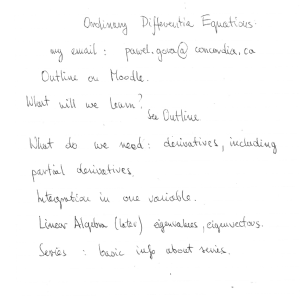 Ordinary Differentia Equations.
my email : pawel.gora@concordia.ca
Outline on Moodle.
What will we learn?
See Outline
What do we need : derivatives, including
partial derivatives,
Integration in one variable.
Linear Algebra (later) eigenvalues, eigenvectors.
Series : basic info about series.